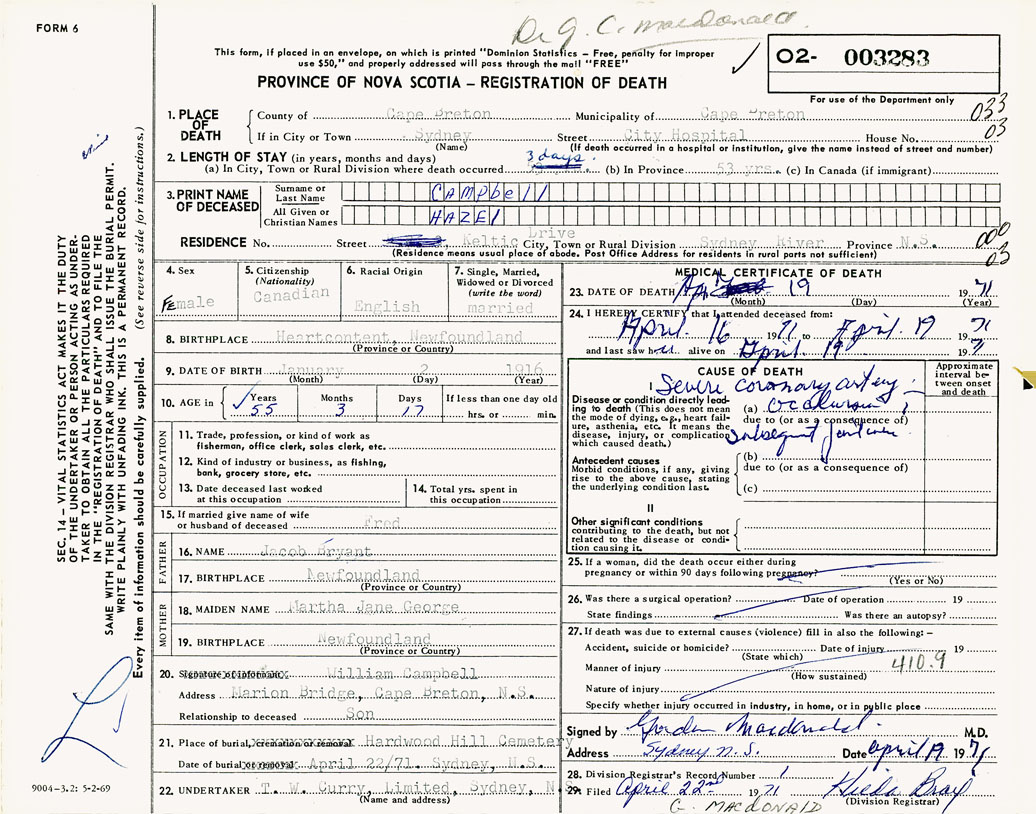 FORM 6
Dr. G. C. Macdonald
This form, if placed in an envelope, on which is printed "Dominion Statistics – Free, penalty for improper
use $50," and properly addressed will pass through the mail "FREE"
PROVINCE OF NOVA SCOTIA – REGISTRATION OF DEATH
02- 003283
For use of the Department only
SEC. 14 – VITAL STATISTICS ACT MAKES IT THE DUTY
OF THE UNDERTAKER OR PERSON ACTING AS UNDER-
TAKER TO OBTAIN ALL THE PARTICULARS REQUIRED
IN THE "REGISTRATION OF DEATH" AND TO FILE THE
SAME WITH THE DIVISION REGISTRAR WHO SHALL ISSUE THE BURIAL PERMIT.
WRITE PLAINLY WITH UNFADING INK. THIS IS A PERMANENT RECORD.
Every item of information should be carefully supplied. (See reverse side for instructions.)
1. PLACE OF DEATH
County of Cape Breton Municipality of Cape Breton 033
If in City or Town Sydney Street City Hospital House No. 03
(Name) (If death occurred in a hospital or institution, give the name instead of street and number)
2. LENGTH OF STAY (in years, months and days) 3 days
(a) In City, Town or Rural Division where death occurred (b) In Province 53 yrs. (c) In Canada (if immigrant)
3. PRINT NAME OF DECEASED
Surname or Last Name CAMPbell
All Given or Christian Names HAZEl
RESIDENCE No. Street Keltic Drive City, Town or Rural Division Sydney River Province N.S. 000
(Residence means usual place of abode. Post Office Address for residents in rural parts not sufficient) 03
4. Sex Female
5. Citizenship (Nationality) Canadian
6. Racial Origin English
7. Single, Married, Widowed or Divorced (write the word) married
8. BIRTHPLACE Heartcontent, Newfoundland
(Province or Country)
9. DATE OF BIRTH January 2 1916
(Month) (Day) (Year)
10. AGE in Years 55 Months 3 Days 17 If less than one day old hrs. or min.
OCCUPATION
11. Trade, profession, or kind of work as
fisherman, office clerk, sales clerk, etc.
12. Kind of industry or business, as fishing,
bank, grocery store, etc.
13. Date deceased last worked
at this occupation
14. Total yrs. spent in
this occupation
15. If married give name of wife
or husband of deceased Fred
FATHER
16. NAME Jacob Bryant
17. BIRTHPLACE Newfoundland
(Province or Country)
MOTHER
18. MAIDEN NAME Martha Jane George
19. BIRTHPLACE Newfoundland
(Province or Country)
20. Signature of informant William Campbell
Address Marion Bridge, Cape Breton, N.S.
Relationship to deceased Son
21. Place of burial, cremation or removal Hardwood Hill Cemetery
Date of burial or removal April 22/71. Sydney, N.S.
22. UNDERTAKER T. W. Curry, Limited, Sydney, N.
(Name and address)
9004-3.2: 5-2-69
MEDICAL CERTIFICATE OF DEATH
23. DATE OF DEATH 19 1971
(Month) (Day) (Year)
24. I HEREBY CERTIFY that I attended deceased from:
April 16 1971 to April 19 1971
and last saw her alive on April 19 1971
CAUSE OF DEATH
Approximate interval between onset and death
I Severe coronary artery
Disease or condition directly leading to death (This does not mean the mode of dying, e.g., heart failure, asthenia, etc. It means the disease, injury, or complication which caused death.)
(a) occlusion
due to (or as a consequence of)
subsequent
Antecedent causes
Morbid conditions, if any, giving rise to the above cause, stating the underlying condition last.
(b)
due to (or as a consequence of)
(c)
II
Other significant conditions
contributing to the death, but not related to the disease or condition causing it.
25. If a woman, did the death occur either during
pregnancy or within 90 days following pregnancy?
(Yes or No)
26. Was there a surgical operation? Date of operation 19
State findings Was there an autopsy?
27. If death was due to external causes (violence) fill in also the following: –
Accident, suicide or homicide? Date of injury 19
(State which) 410.9
Manner of injury
(How sustained)
Nature of injury
Specify whether injury occurred in industry, in home, or in public place
Signed by Gordon Macdonald M.D.
Address Sydney N.S. Date april 19 1971
28. Division Registrar's Record Number 1
29. Filed April 22nd 1971 Hilda Bray
G. MACDONALD (Division Registrar)